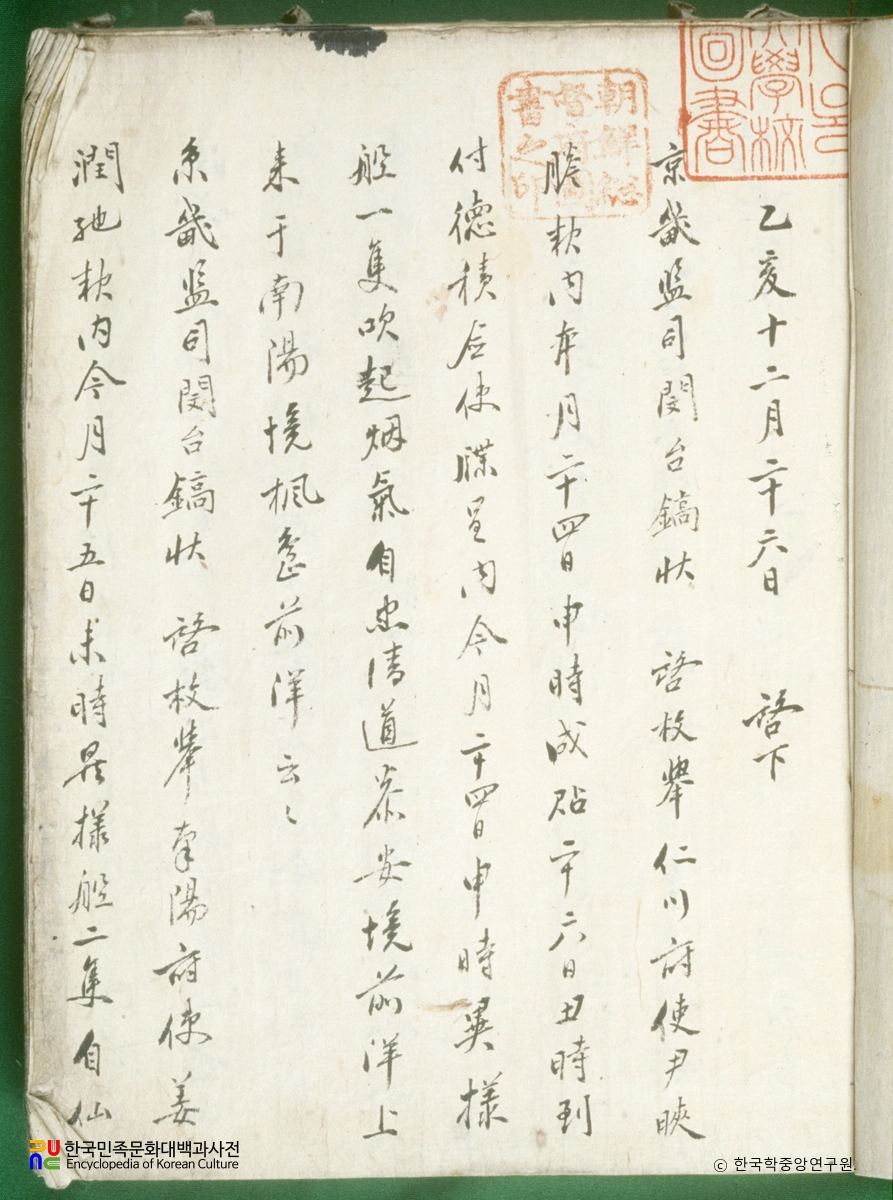 乙亥十二月二十六日　啓下
京畿監司閔台鎬狀　啓枚擧仁川府使尹㫟
牒款內本月二十四日申時成貼二十六日丑時到
付德積僉使牒呈內今月二十四日申時異樣
船一隻吹起烟氣自忠淸道泰安境前洋上
來于南陽境楓島前洋云〻
京畿監司閔台鎬狀　啓枚擧南陽府使姜
潤馳款內今月二十五日未時異樣船二隻自仙
朝鮮總
督府圖
書之印
大學校
圖書
한국민족문화대백과사전
Encyclopedia of Korean Culture
© 한국학중앙연구원.